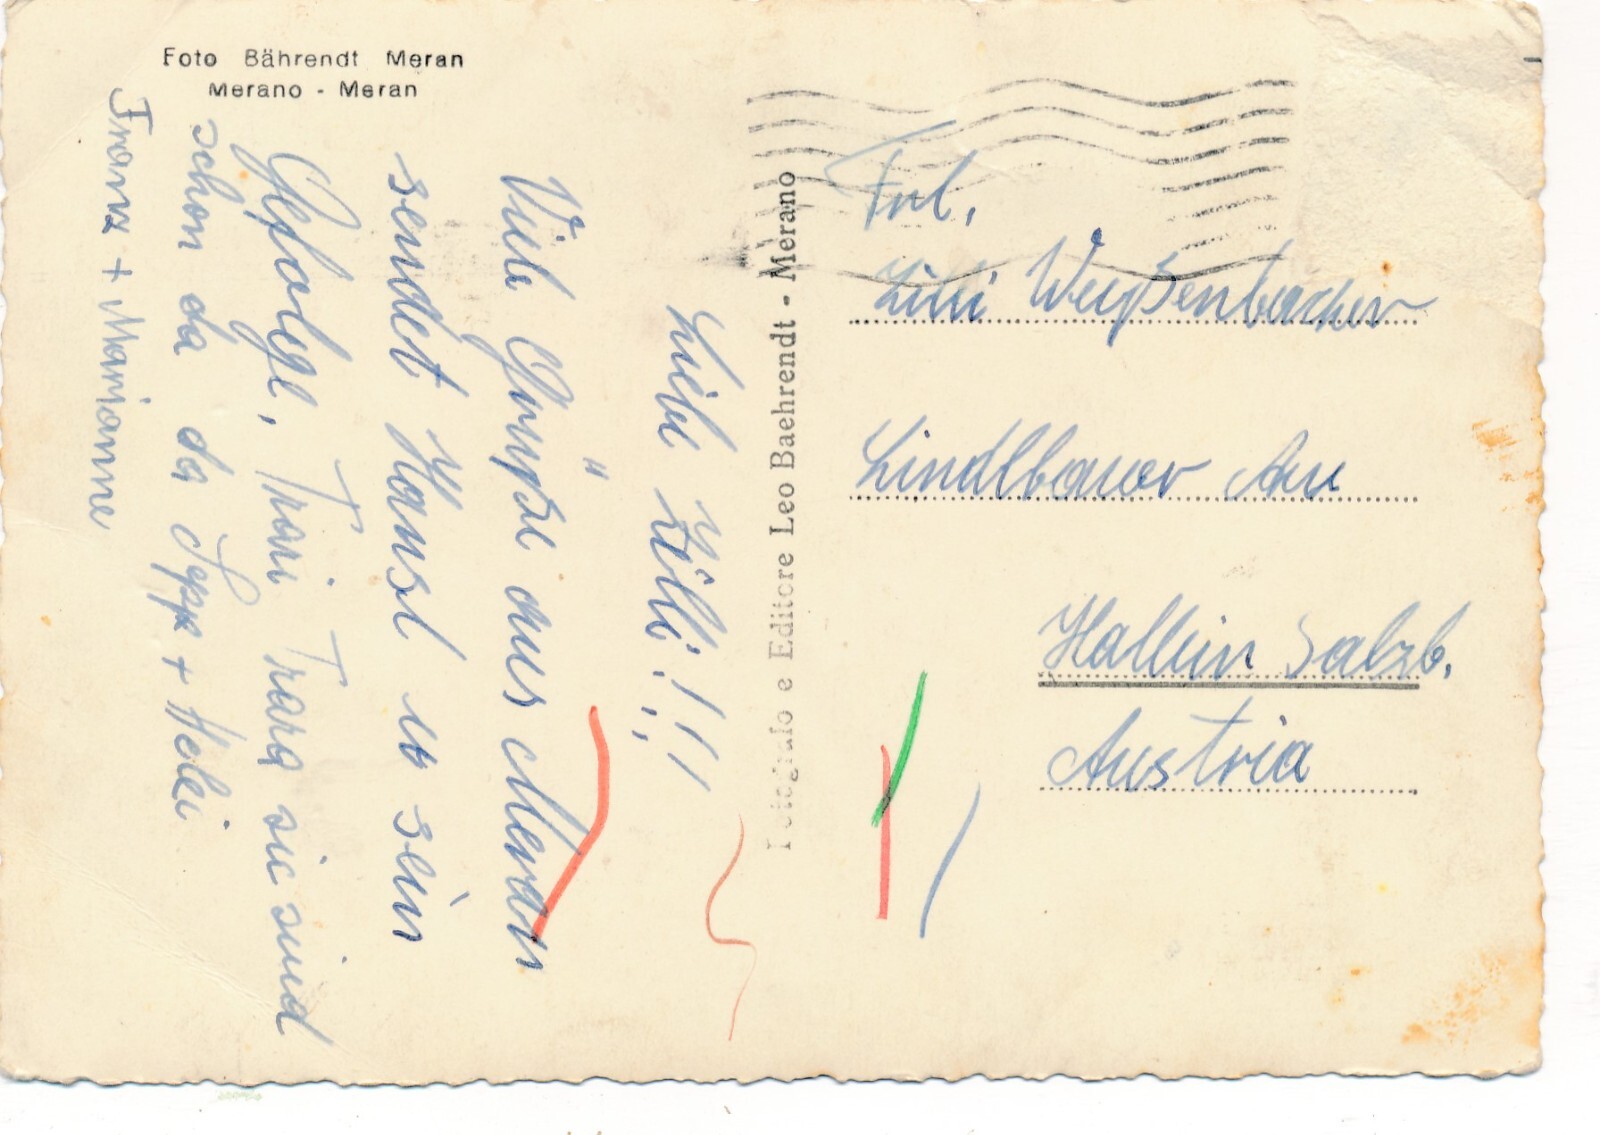 Foto Bährendt Meran
Merano - Meran
Liebe Lilli!!!
Viele Grüße aus Meran
sendet Hansl u sein
Gefolge, Trari Trara sie sind
schon da der Sepp + Heli
Franz + Marianne
Fotografo e Editore Leo Baehrendt - Merano
Frl.
Lilli Weißenbacher
Lindlbauer Au
Hallein Salzb.
Austria